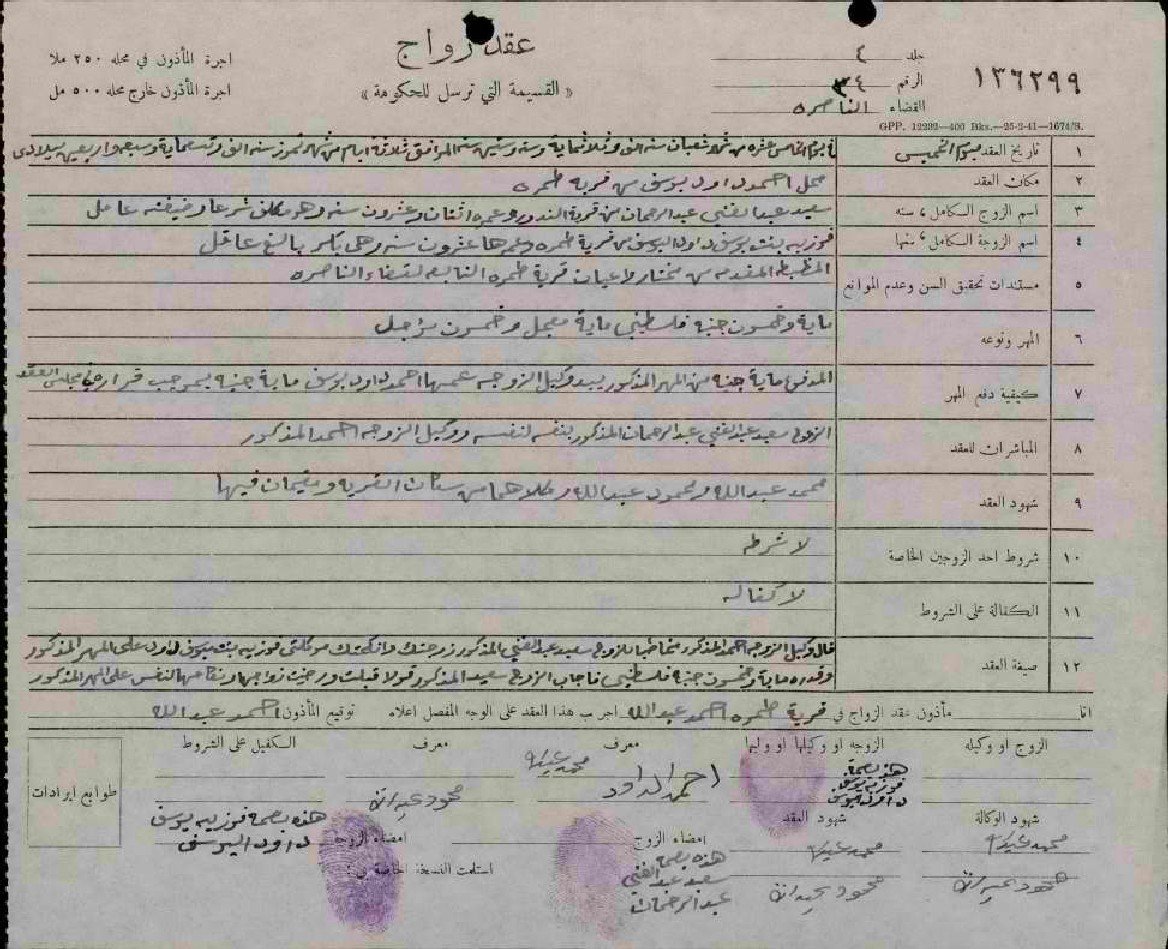 عقد زواج
« القسيمة التي ترسل للحكومة »
اجرة المأذون في محله ٢٥٠ ملا
اجرة المأذون خارج محله ٥٠٠ مل
جلد ٤
الرقم ٣٤
القضاء الناصره
١٣٦٢٩٩
GPP. 12292—400 Bks.—25-2-41—1674/S.
١ تاريخ العقد يوم الخميس عشره من شهر شعبان سنه الف وثلاثماية وستة وستين سنه الموافق ثلاثة ايام من شهر تموز سنه الف وتسعماية وسبعه واربعين ميلادى
٢ مكان العقد محل احمد داود يوسف من قرية طمره
٣ اسم الزوج الكامل، سنه سعيد عبد الغني عبد الرحمان من قرية الندور وعمره اثنان وعشرون سنه وهو مكلف شرعا وضيفته عامل
٤ اسم الزوجة الكامل، سنها فوزيه بنت يوسف داود اليوسف من قرية طمره وعمرها عشرون سنه وهي باكر بالغ عاقل
٥ مستندات تحقيق السن وعدم الموانع المظبطه المقدمه من مختار واعيان قرية طمره التابعه لقضاء الناصره
٦ المهر ونوعه ماية وخمسون جنيه فلسطيني ماية معجل وخمسون مؤجل
٧ كيفية دفع المهر المدفوع ماية جنيه من المهر المذكور بيد وكيل الزوجه عمها احمد داود يوسف ماية جنيه بموجب قراره في مجلس العقد
٨ المباشران للعقد الزوج سعيد عبد الغني عبد الرحمان المذكور بنفسه لنفسه ووكيل الزوجه احمد المذكور
٩ شهود العقد محمد عبد الله ومحمود عبد الله وكلاهما من سكان القريه ومقيمان فيها
١٠ شروط احد الزوجين الخاصة لا شرطه
١١ الكفالة على الشروط لا كفاله
١٢ صيغة العقد قال وكيل الزوجه احمد المذكور مخاطبا للزوج سعيد عبد الغني المذكور زوجتك وانكحتك موكلتي فوزيه بنت يوسف داود على المهر المذكور
وقدره ماية وخمسون جنيه فلسطيني فاجاب الزوج سعيد المذكور قولا قبلت ورضيت زواجها ونكاحها لنفسي على المهر المذكور
انا مأذون عقد الزواج في قرية طمره احمد عبد الله اجرب هذا العقد على الوجه المفصل اعلاه توقيع المأذون احمد عبد الله
الزوج او وكيله الزوجه او وكيلها او وليها معرف معرف الكفيل على الشروط
هذه بصمة
فوزيه يوسف
داود اليوسف
احمد الداود
محمد عبد الله
محمود عبد الله
طوابع ايرادات
شهود الوكالة شهود العقد امضاء الزوج امضاء الزوجة
هذه بصمة فوزيه يوسف
داود اليوسف
محمد عبد الله
محمد عبد الله
هذه بصمة
سعيد عبد الغني
عبد الرحمان
استلمت النسخة الخاصة بي:
محمود عبد الله
محمود عبد الله